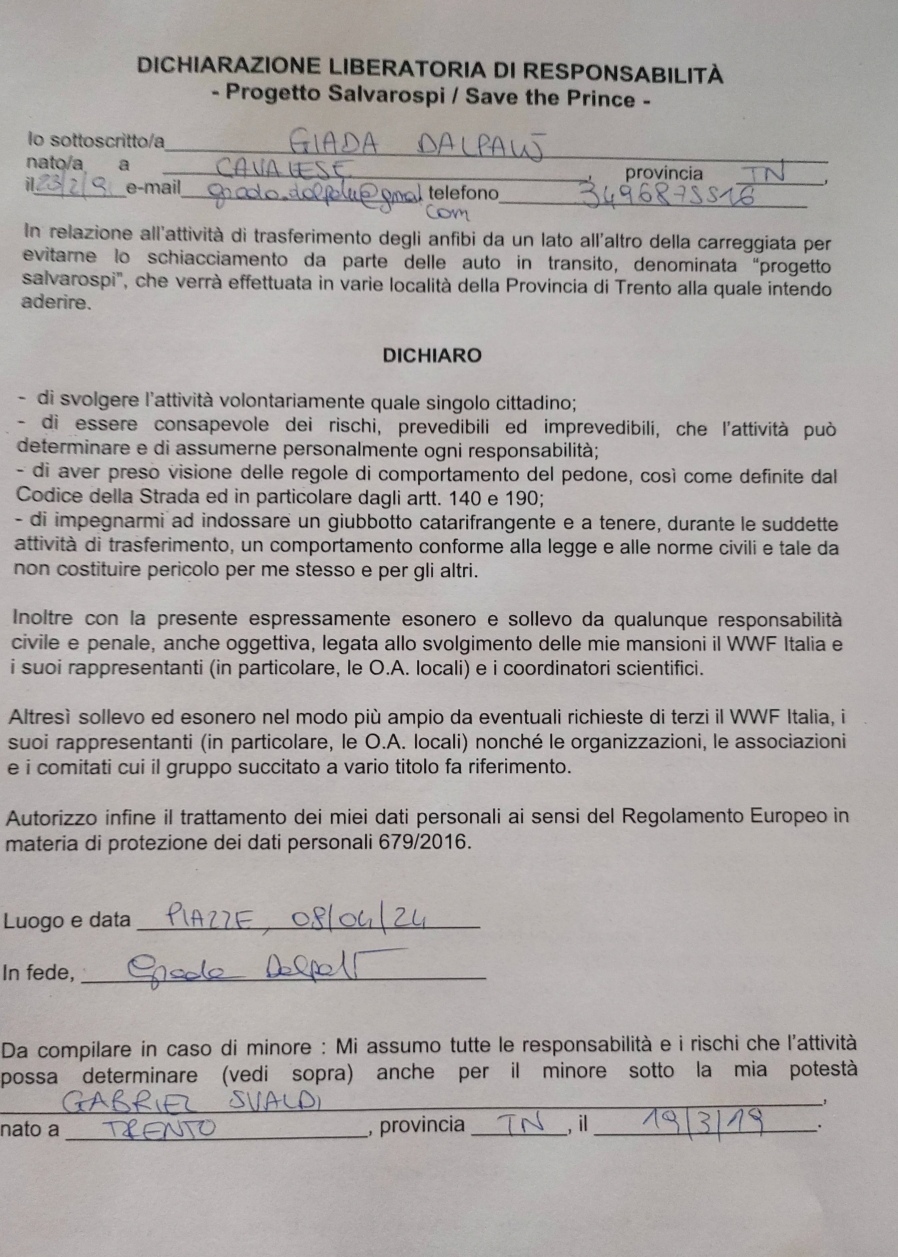 DICHIARAZIONE LIBERATORIA DI RESPONSABILITÀ
- Progetto Salvarospi / Save the Prince -
Io sottoscritto/a GIADA
nato/a a CAVALESE, provincia TN,
il e-mail telefono 3496875516
com
In relazione all'attività di trasferimento degli anfibi da un lato all'altro della carreggiata per
evitarne lo schiacciamento da parte delle auto in transito, denominata "progetto
salvarospi", che verrà effettuata in varie località della Provincia di Trento alla quale intendo
aderire.
DICHIARO
- di svolgere l'attività volontariamente quale singolo cittadino;
- di essere consapevole dei rischi, prevedibili ed imprevedibili, che l'attività può
determinare e di assumerne personalmente ogni responsabilità;
- di aver preso visione delle regole di comportamento del pedone, così come definite dal
Codice della Strada ed in particolare dagli artt. 140 e 190;
- di impegnarmi ad indossare un giubbotto catarifrangente e a tenere, durante le suddette
attività di trasferimento, un comportamento conforme alla legge e alle norme civili e tale da
non costituire pericolo per me stesso e per gli altri.
Inoltre con la presente espressamente esonero e sollevo da qualunque responsabilità
civile e penale, anche oggettiva, legata allo svolgimento delle mie mansioni il WWF Italia e
i suoi rappresentanti (in particolare, le O.A. locali) e i coordinatori scientifici.
Altresì sollevo ed esonero nel modo più ampio da eventuali richieste di terzi il WWF Italia, i
suoi rappresentanti (in particolare, le O.A. locali) nonché le organizzazioni, le associazioni
e i comitati cui il gruppo succitato a vario titolo fa riferimento.
Autorizzo infine il trattamento dei miei dati personali ai sensi del Regolamento Europeo in
materia di protezione dei dati personali 679/2016.
Luogo e data PIAZZE, 08/04/24
In fede, Giada
Da compilare in caso di minore : Mi assumo tutte le responsabilità e i rischi che l'attività
possa determinare (vedi sopra) anche per il minore sotto la mia potestà
GABRIEL SVALDI,
nato a TRENTO, provincia TN, il 19/3/19.